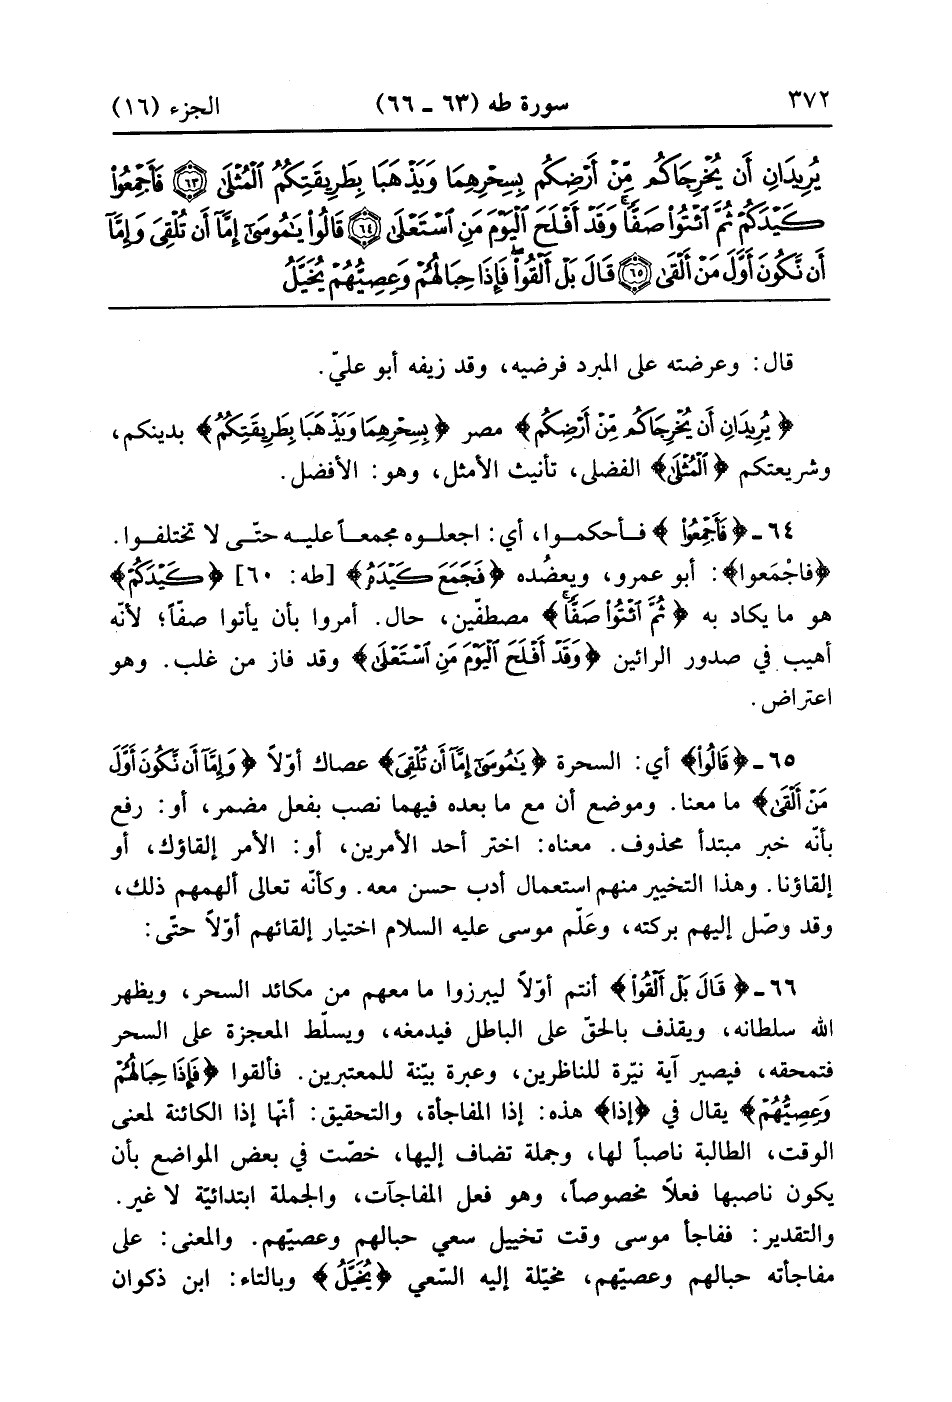 ٣٧٢ سورة طه (٦٣ ـ ٦٦) الجزء (١٦)
يُرِيدَانِ أَن يُخْرِجَاكُم مِّنْ أَرْضِكُم بِسِحْرِهِمَا وَيَذْهَبَا بِطَرِيقَتِكُمُ الْمُثْلَىٰ ٦٣ فَأَجْمِعُوا۟
كَيْدَكُمْ ثُمَّ ائْتُوا۟ صَفًّا ۚ وَقَدْ أَفْلَحَ الْيَوْمَ مَنِ اسْتَعْلَىٰ ٦٤ قَالُوا۟ يَٰمُوسَىٰٓ إِمَّآ أَن تُلْقِيَ وَإِمَّآ
أَن نَّكُونَ أَوَّلَ مَنْ أَلْقَىٰ ٦٥ قَالَ بَلْ أَلْقُوا۟ ۖ فَإِذَا حِبَالُهُمْ وَعِصِيُّهُمْ يُخَيَّلُ
قال: وعرضته على المبرد فرضيه، وقد زيفه أبو عليّ.
﴿يُرِيدَانِ أَن يُخْرِجَاكُم مِّنْ أَرْضِكُم﴾ مصر ﴿بِسِحْرِهِمَا وَيَذْهَبَا بِطَرِيقَتِكُمُ﴾ بدينكم،
وشريعتكم ﴿الْمُثْلَىٰ﴾ الفضلى، تأنيث الأمثل، وهو: الأفضل.
٦٤ ـ ﴿فَأَجْمِعُوا۟﴾ فـأحكمـوا، أي: اجعلـوه مجمعـاً عليـه حتّـى لا تختلفـوا.
﴿فاجْمَعوا﴾: أبو عمرو، ويعضُده ﴿فَجَمَعَ كَيْدَهُ﴾ [طه: ٦٠] ﴿كَيْدَكُمْ﴾
هو ما يكاد به ﴿ثُمَّ ائْتُوا۟ صَفًّا ۚ﴾ مصطفّين، حال. أمروا بأن يأتوا صفّاً؛ لأنّه
أهيب في صدور الرائين ﴿وَقَدْ أَفْلَحَ الْيَوْمَ مَنِ اسْتَعْلَىٰ﴾ وقد فاز من غلب. وهو
اعتراض.
٦٥ ـ ﴿قَالُوا۟﴾ أي: السحرة ﴿يَٰمُوسَىٰٓ إِمَّآ أَن تُلْقِيَ﴾ عصاك أوّلاً ﴿وَإِمَّآ أَن نَّكُونَ أَوَّلَ
مَنْ أَلْقَىٰ﴾ ما معنا. وموضع أن مع ما بعده فيهما نصب بفعل مضمر، أو: رفع
بأنّه خبر مبتدأ محذوف. معناه: اختر أحد الأمرين، أو: الأمر إلقاؤك، أو
إلقاؤنا. وهذا التخيير منهم استعمال أدب حسن معه. وكأنّه تعالى ألهمهم ذلك،
وقد وصّل إليهم بركته، وعَلّم موسى عليه السلام اختيار إلقائهم أوّلاً حتّى:
٦٦ ـ ﴿قَالَ بَلْ أَلْقُوا۟﴾ أنتم أوّلاً ليبرزوا ما معهم من مكائد السحر، ويظهر
الله سلطانه، ويقذف بالحقّ على الباطل فيدمغه، ويسلّط المعجزة على السحر
فتمحقه، فيصير آية نيّرة للناظرين، وعبرة بيّنة للمعتبرين. فألقوا ﴿فَإِذَا حِبَالُهُمْ
وَعِصِيُّهُمْ﴾ يقال في ﴿إذا﴾ هذه: إذا المفاجأة، والتحقيق: أنّها إذا الكائنة لمعنى
الوقت، الطالبة ناصباً لها، وجملة تضاف إليها، خصّت في بعض المواضع بأن
يكون ناصبها فعلاً مخصوصاً، وهو فعل المفاجآت، والجملة ابتدائيّة لا غير.
والتقدير: ففاجأ موسى وقت تخييل سعي حبالهم وعصيّهم. والمعنى: على
مفاجأته حبالهم وعصيّهم، مخيّلة إليه السّعي ﴿يُخَيَّلُ﴾ وبالتاء: ابن ذكوان